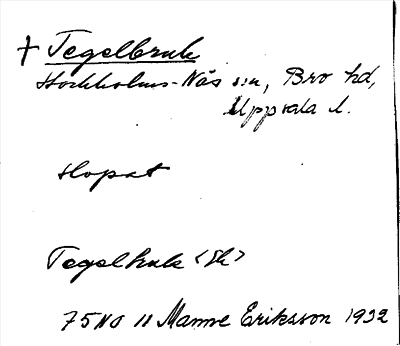 † Tegelbruk
Stockholms-Näs sn, Bro hd,
Uppsala l.
slopat
Tegelbruk <Ek>
75 NO 11 Manne Eriksson 1932